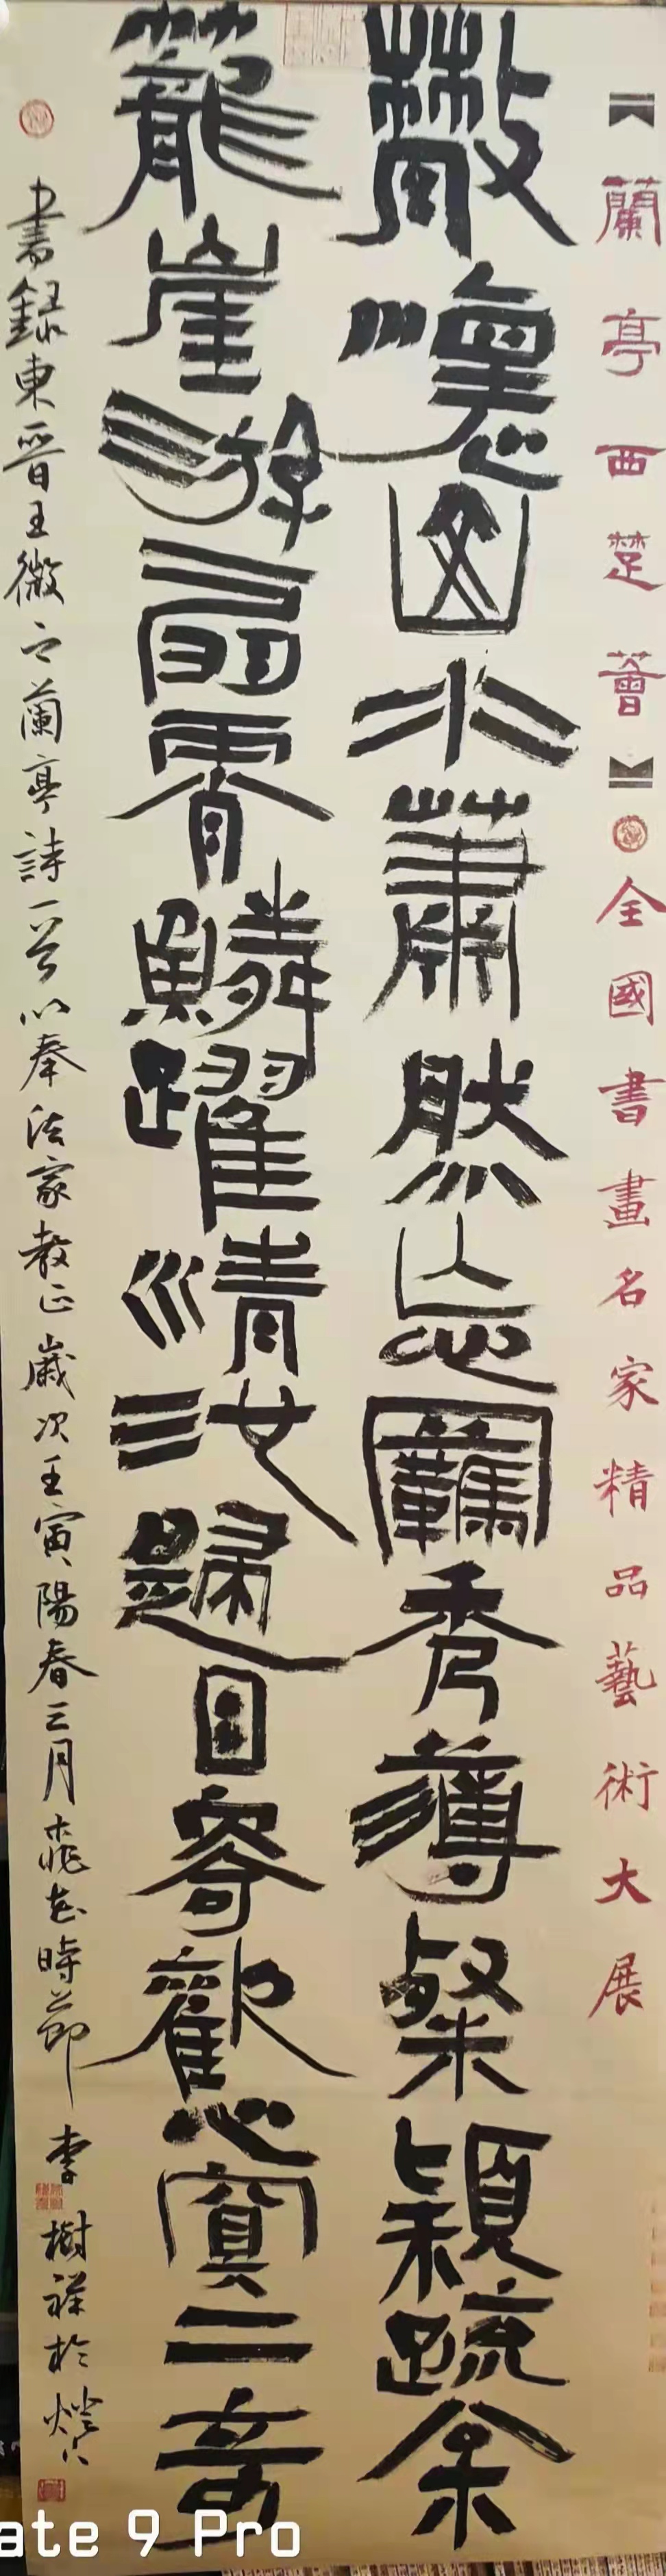 【蘭亭西楚薈】全國書畫名家精品藝術大展
散懷山水蕭然忘羈秀薄粲穎疏松
籠崖游扇霄鱗躍清池歸目寄歡心冥二奇
書錄東晉王徽之蘭亭詩一首以奉法家教正歲次壬寅陽春三月桃花時節李樹祥於燈下
ate 9 Pro